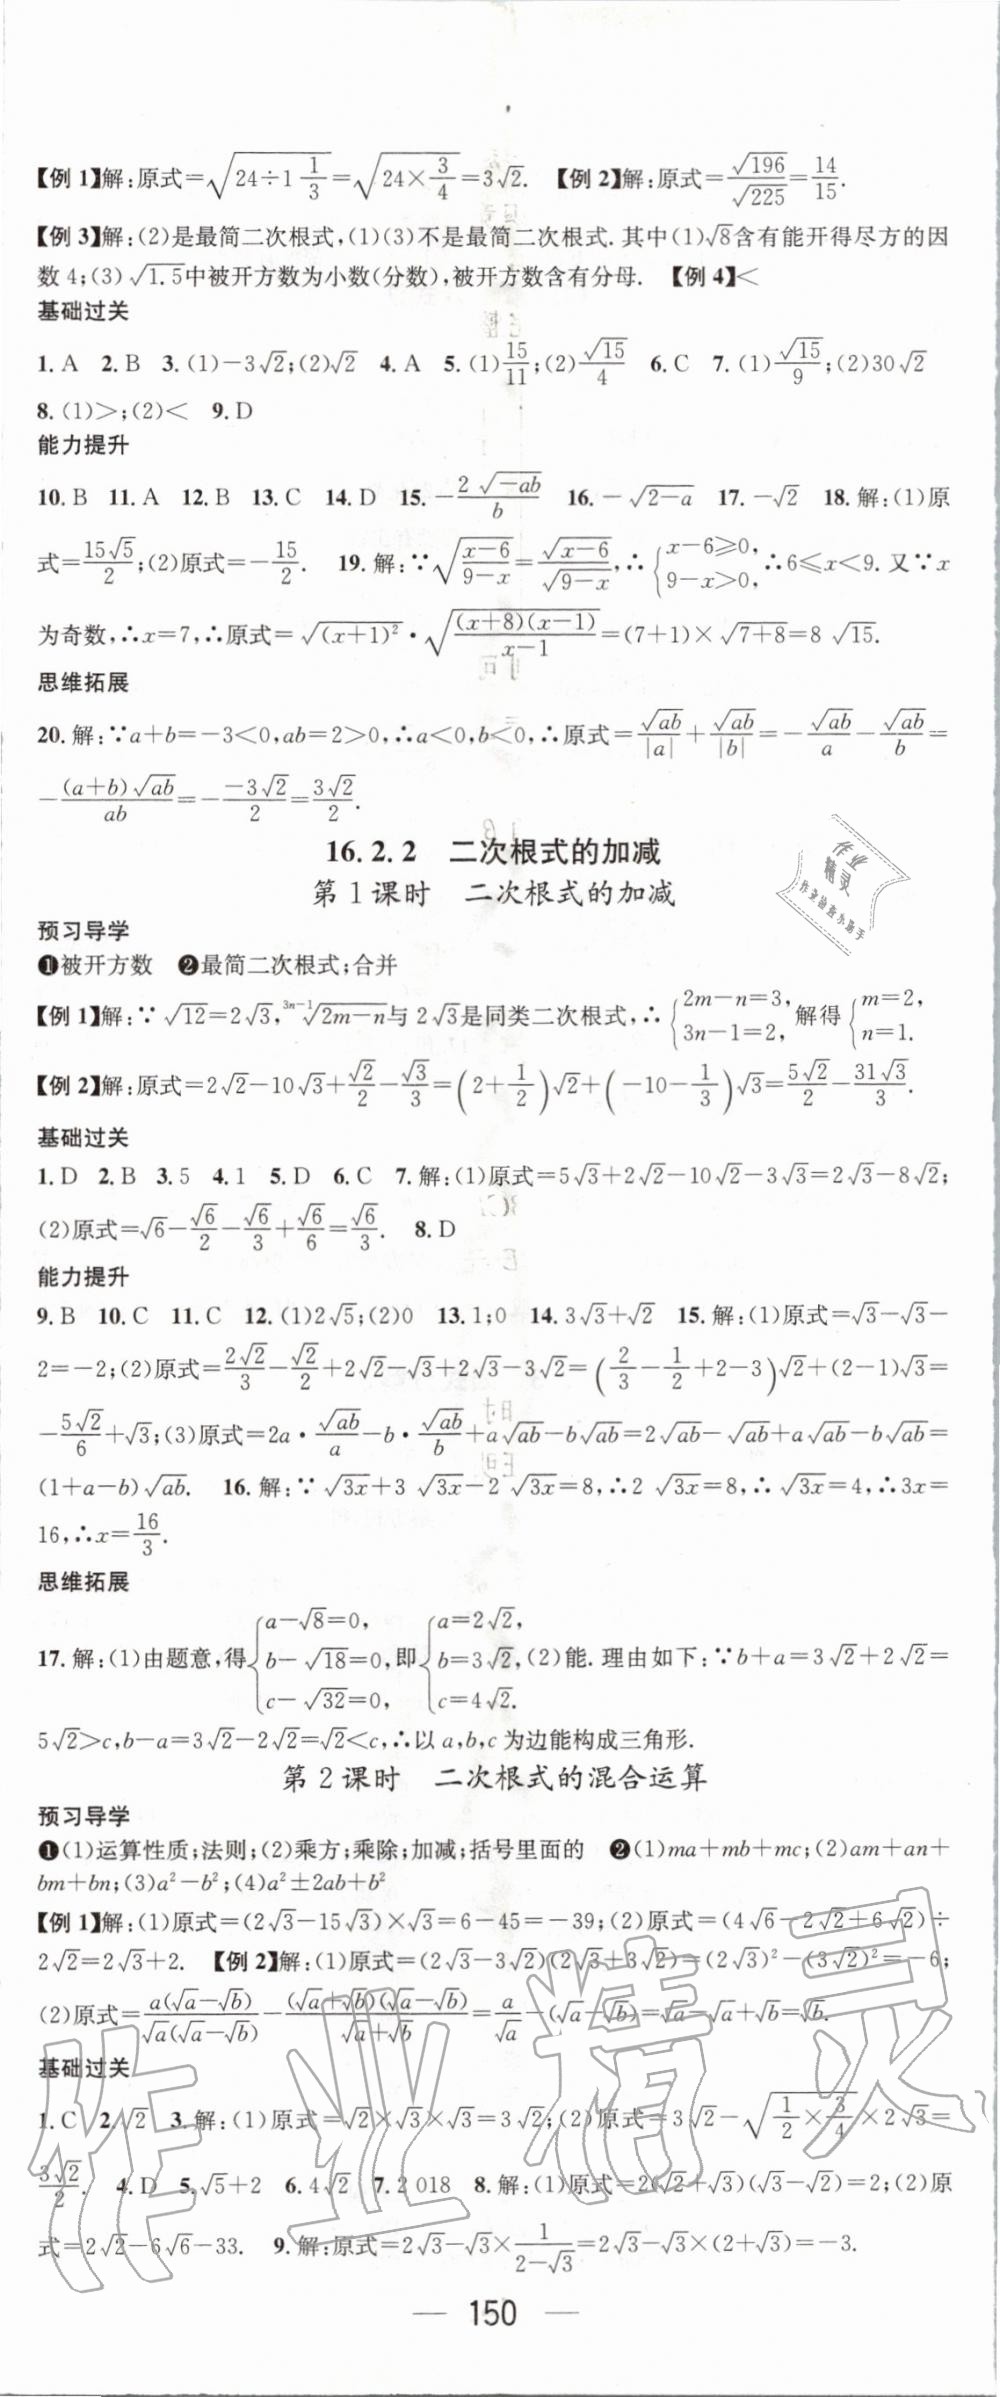 【例 1】解:原式=√(24÷1 1/3)=√(24×3/4)=3√2. 【例 2】解:原式=√196/√225=14/15.
【例 3】解:(2)是最简二次根式,(1)(3)不是最简二次根式.其中(1)√8含有能开得尽方的因
数 4;(3)√1.5中被开方数为小数(分数),被开方数含有分母. 【例 4】<
基础过关
1. A 2. B 3. (1)-3√2;(2)√2 4. A 5. (1)15/11;(2)√15/4 6. C 7. (1)√15/9;(2)30√2
8. (1)>;(2)< 9. D
能力提升
10. B 11. A 12. B 13. C 14. D 15. -2√(-ab)/b 16. -√(2-a) 17. -√2 18. 解:(1)原
式=15√5/2;(2)原式=-15/2. 19. 解:∵√((x-6)/(9-x))=√(x-6)/√(9-x),∴{x-6≥0, 9-x>0,∴6≤x<9.又∵x
为奇数,∴x=7,∴原式=√((x+1)²)·√((x+8)(x-1)/(x-1))=(7+1)×√(7+8)=8√15.
思维拓展
20. 解:∵a+b=-3<0,ab=2>0,∴a<0,b<0,∴原式=√ab/|a|+√ab/|b|=-√ab/a-√ab/b=
-(a+b)√ab/ab=-(-3√2)/2=3√2/2.
16.2.2 二次根式的加减
第 1 课时 二次根式的加减
预习导学
❶被开方数 ❷最简二次根式;合并
【例 1】解:∵√12=2√3,³ⁿ⁻¹√(2m-n)与 2√3是同类二次根式,∴{2m-n=3, 3n-1=2,解得{m=2, n=1.
【例 2】解:原式=2√2-10√3+√2/2-√3/3=(2+1/2)√2+(-10-1/3)√3=5√2/2-31√3/3.
基础过关
1. D 2. B 3. 5 4. 1 5. D 6. C 7. 解:(1)原式=5√3+2√2-10√2-3√3=2√3-8√2;
(2)原式=√6-√6/2-√6/3+√6/6=√6/3. 8. D
能力提升
9. B 10. C 11. C 12. (1)2√5;(2)0 13. 1;0 14. 3√3+√2 15. 解:(1)原式=√3-√3-
2=-2;(2)原式=2√2/3-√2/2+2√2-√3+2√3-3√2=(2/3-1/2+2-3)√2+(2-1)√3=
-5√2/6+√3;(3)原式=2a·√ab/a-b·√ab/b+a√ab-b√ab=2√ab-√ab+a√ab-b√ab=
(1+a-b)√ab. 16. 解:∵√3x+3√3x-2√3x=8,∴2√3x=8,∴√3x=4,∴3x=
16,∴x=16/3.
思维拓展
17. 解:(1)由题意,得{a-√8=0, b-√18=0, c-√32=0,即{a=2√2, b=3√2, c=4√2.(2)能.理由如下:∵b+a=3√2+2√2=
5√2>c,b-a=3√2-2√2=√2<c,∴以 a,b,c 为边能构成三角形.
第 2 课时 二次根式的混合运算
预习导学
❶(1)运算性质;法则;(2)乘方;乘除;加减;括号里面的 ❷(1)ma+mb+mc;(2)am+an+
bm+bn;(3)a²-b²;(4)a²±2ab+b²
【例 1】解:(1)原式=(2√3-15√3)×√3=6-45=-39;(2)原式=(4√6-2√2+6√2)÷
2√2=2√3+2. 【例 2】解:(1)原式=(2√3-3√2)(2√3+3√2)=(2√3)²-(3√2)²=-6;
(2)原式=a(√a-√b)/√a(√a-√b)-(√a+√b)(√a-√b)/(√a+√b)=a/√a-(√a-√b)=√a-√a+√b=√b.
基础过关
1. C 2. √2 3. 解:(1)原式=√2×√3×√3=3√2;(2)原式=3√2-√(1/2×3/4)×2√3=
3√2/2. 4. D 5. √5+2 6. 4√2 7. 2 018 8. 解:(1)原式=2(√2+√3)(√3-√2)=2;(2)原
式=2√2-6√6-33. 9. 解:原式=2√3-√3×1/(2-√3)=2√3-√3×(2+√3)=-3.
— 150 —
作业
精灵
作业检查小助手
作业精灵